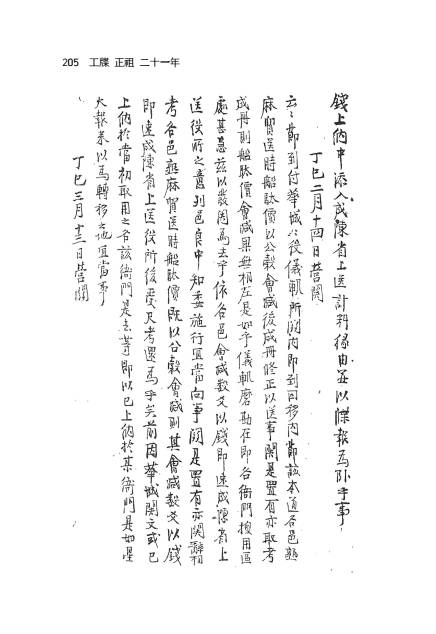 205 工牒 正祖 二十一年
錢上納中添入成陳省上送計料緣由並以牒報爲臥乎事
丁巳二月十四日營關
云云節到付華城城役儀軌所關內卽到回移內節該本道各邑熟
麻貿送時船駄價以公穀會減後成冊修正以送事關是置有亦取考
成冊則船駄價會減果無相左是如乎儀軌磨勘在卽各衙門挪用區
處甚急茲以發關爲去乎依各邑會減數爻以錢卽速成陳省上
送役所之意列邑良中知委施行宜當向事關是置有亦關辭相
考各邑熟麻貿送時船駄價旣以公穀會減則其會減數爻以錢
卽速成陳省上送役所後受尺考還爲乎矣前因華城關文或已
上納於當初取用之各該衙門是去等卽以已上納於某衙門是如星
火報來以爲轉移之地宜當事
丁巳三月十三日營關